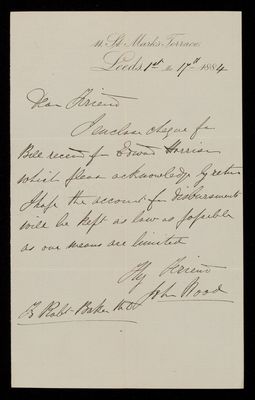 11 St. Mark's Terrace
Leeds, 1st Mo 17th 1884
Dear Friend
I enclose cheque for
Bill received for Edward Harrison
which please acknowledge by return
I hope the account for disbursements
will be kept as low as possible
as our means are limited
Thy Friend
John Wood
To Robt Baker